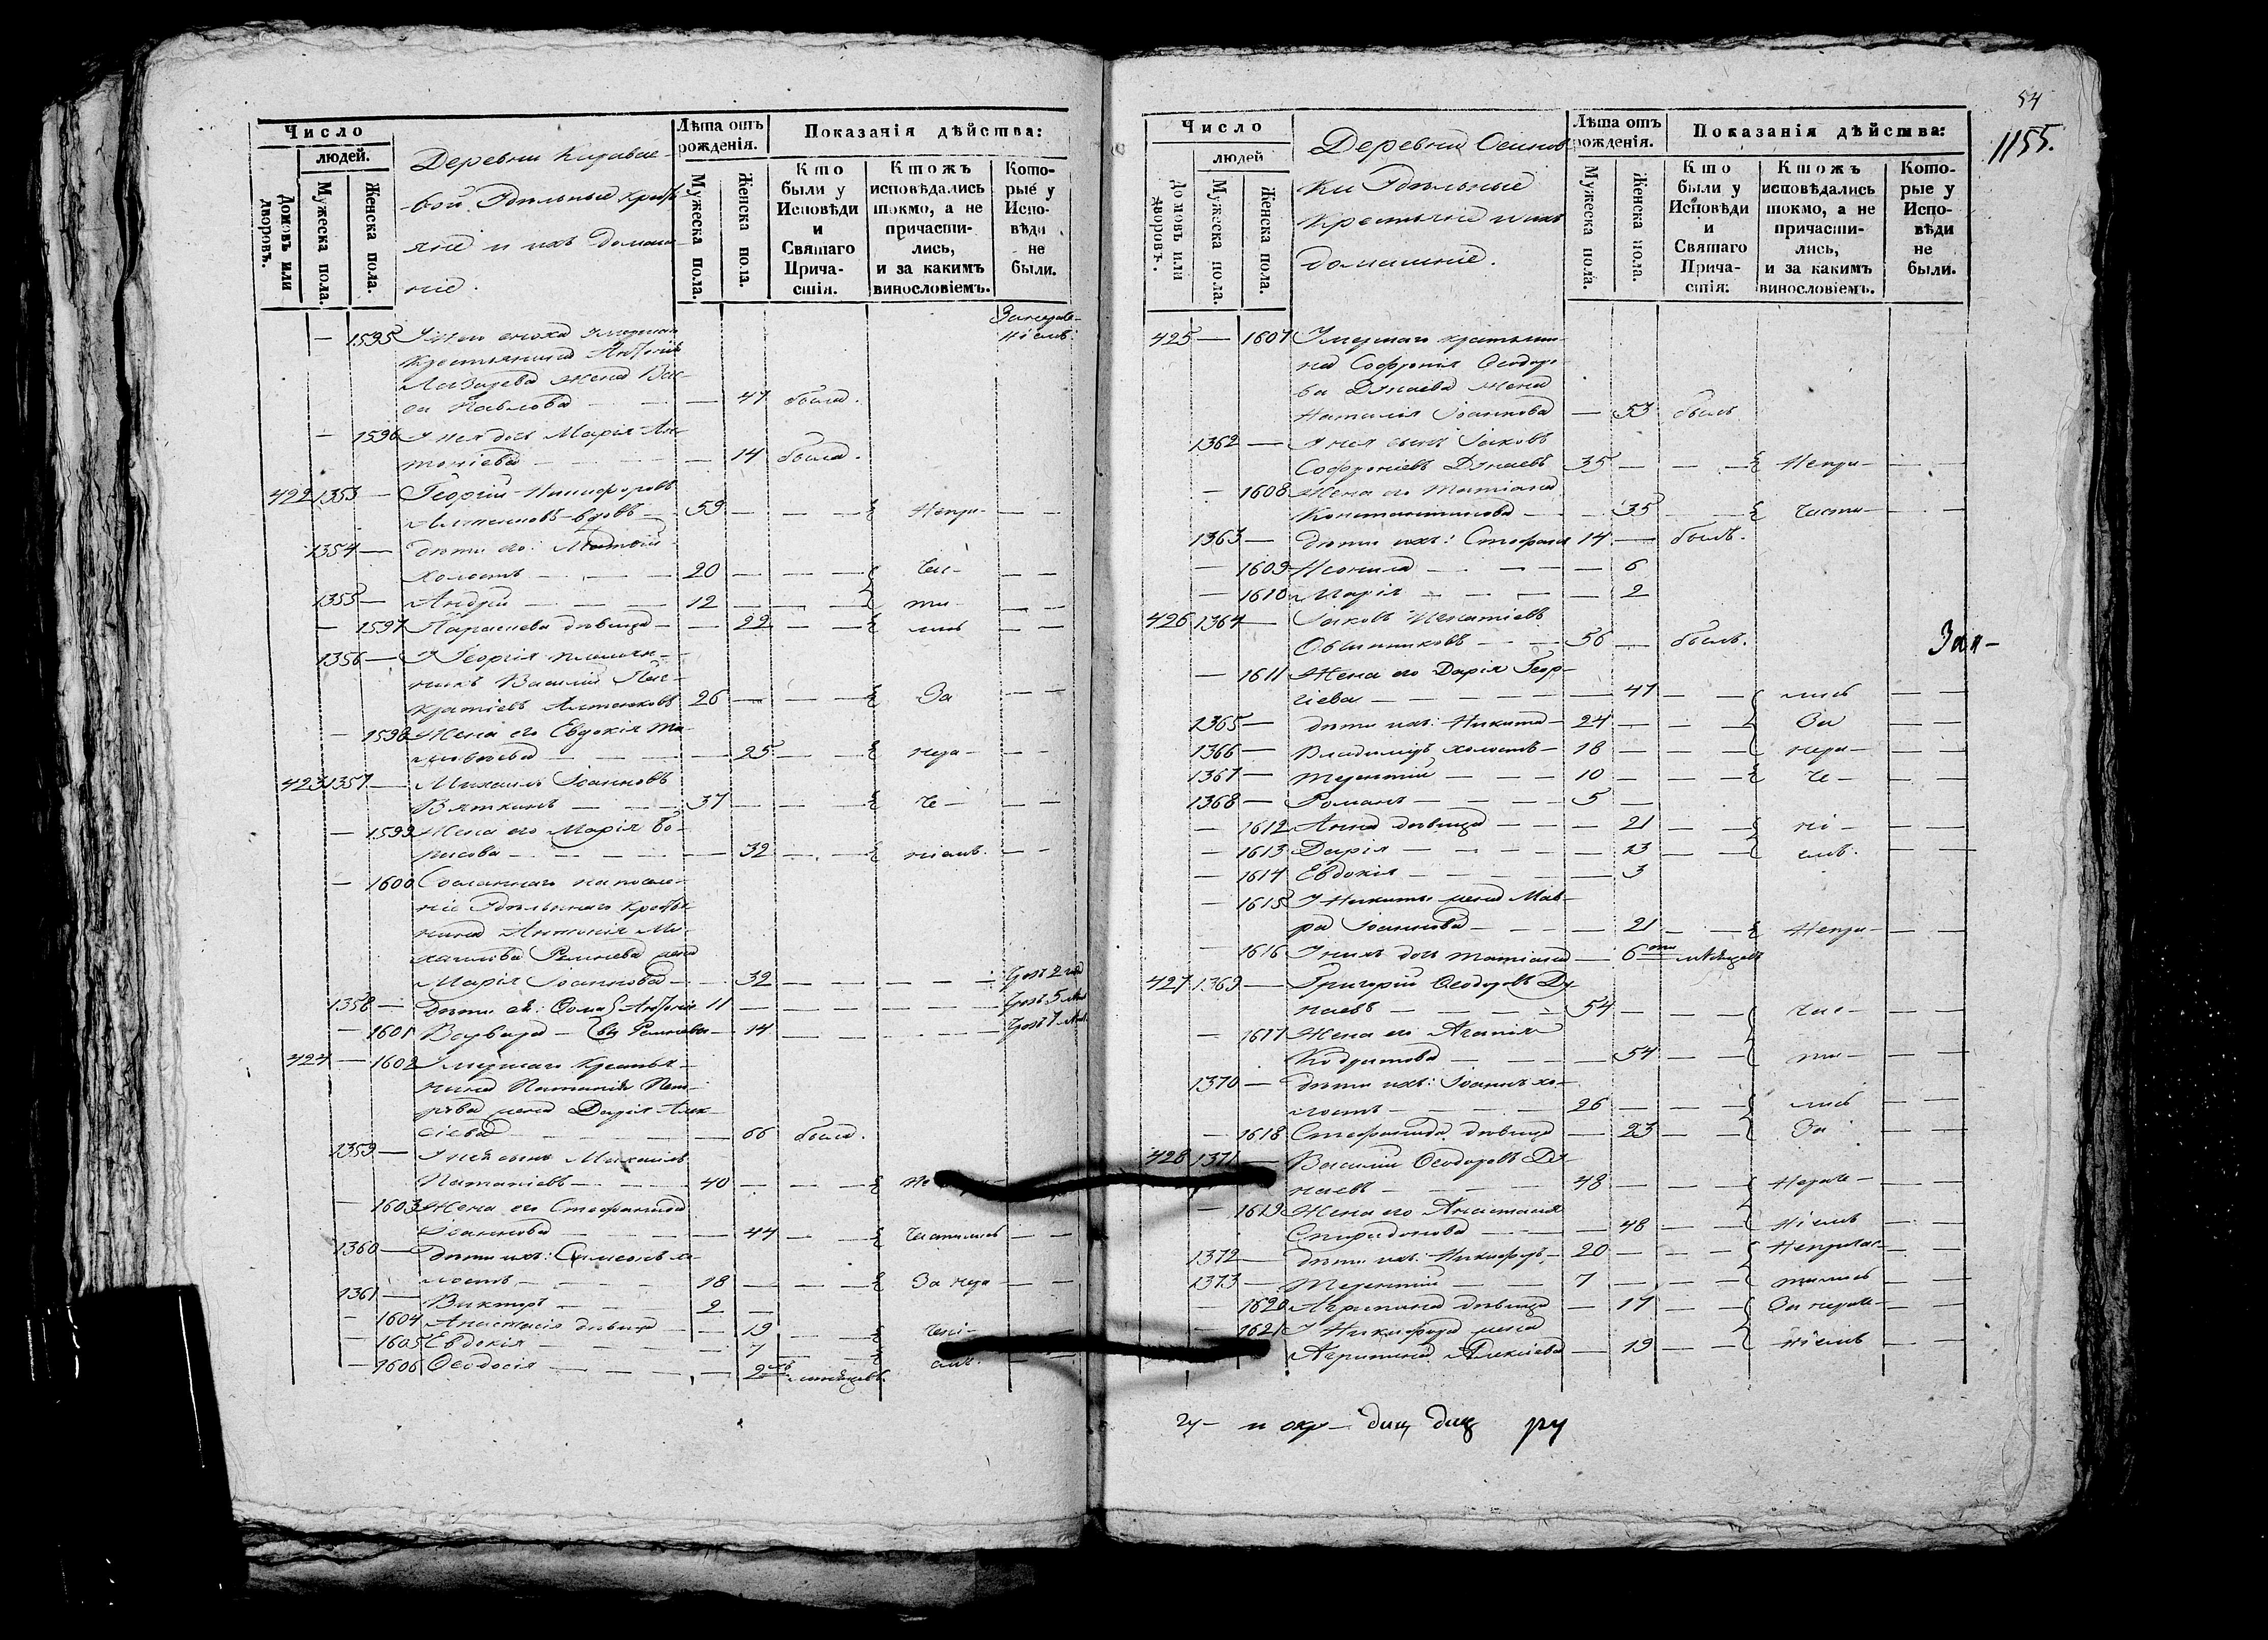 Число
людей.
Домовъ или дворовъ.
Мужеска пола.
Женска пола.
Деревни Караваевой Удѣльные крестьяне и ихъ домашніе.
Лѣта отъ рожденія.
Мужеска пола.
Женска пола.
Показанія дѣйства:
Кто были у Исповѣди и Святаго Причастія.
Ктожъ исповѣдались токмо, а не причастились, и за какимъ винословіемъ.
Которые у Исповѣди не были.
— 1595 умершаго
крестьянина Антонія
Лазарева жена
Павлова — — 47 была.
— 1596 У нея дочь Марія Ан-
тоніева — — 14 была.
422 1353 — Георгій Никифоровъ
вдовъ — 59 — — Непри- — —
1354 — дѣти его: Матѳей
холостъ — 20 — — час- — —
1355 — Андрей — — 12 — — ти- — —
— 1597 Параскева дѣвица — — 22 — — лись — —
1356 — У Георгія племян-
никъ Василій Пан-
кратіевъ 26 — — За — —
— 1598 Жена его Евдокія
— — 25 — — нера- — —
423 1357 — Михаилъ Іоанновъ
Вяткинъ — — 37 — — че- — —
— 1599 Жена его Марія Бо-
рисова — — 32 — — ніемъ. — —
— 1600 Сосланнаго на поселе-
ніе Удѣльнаго крестья-
нина Антонія Ми-
хайлова жена
Марія Іоаннова — — 32 — —
1358 — Дѣти ея: Ѳома Антоніе 11 — —
— 1601 Варвара — вы — 14 — —
424 — 1602 Умершаго крестья-
нина Потапія Пет-
рова жена Дарія Алек-
сіева — — 66 была.
1359 — У ней сынъ Михаилъ
Потапіевъ — — 40 — — Не
— 1603 Жена его Стефанида
Іоаннова — — 44 — — частились
1360 — дѣти ихъ: Симеонъ хо-
лостъ — — 18 — — За нера — —
1361 — Викторъ — — 2 —
— 1604 Анастасія дѣвица — — 19 — — чені-
— 1605 Евдокія — — 7 — — емъ.
— 1606 Ѳеодосія — — 2 мѣсяцевъ.
54
1155.
Число
людей
Домовъ или дворовъ.
Мужеска пола.
Женска пола.
Деревни Осинов-
ки Удѣльные
Крестьяне и ихъ
домашніе.
Лѣта отъ рожденія.
Мужеска пола.
Женска пола.
Показанія дѣйства:
Кто были у Исповѣди и Святаго Причастія:
Ктожъ исповѣдались токмо, а не причастились, и за какимъ винословіемъ.
Которые у Исповѣди не были.
425 — 1607 Умершаго крестьяни-
на Софронія Ѳеодоро-
ва Дунаева жена
Наталія Іоаннова — 53 была
1362 — У нея сынъ Іаковъ
Софроніевъ Дунаевъ 35 — — Непри- — —
— 1608 Жена его Татіана
Константинова — — 35 — — части- — —
1363 — дѣти ихъ: Стефанъ 14 — былъ.
— 1609 Неонила — — — 6
— 1610 Марія — — — 2
426 1364 — Іаковъ Игнатіевъ
Овчинниковъ — — 56 — былъ.
— 1611 Жена его Дарія Геор-
гіева — — — 47 — — лись — —
1365 — дѣти ихъ: Никита — 24 — — За — —
1366 — Владимиръ холостъ — 18 — — нера- — —
1367 — Терентій — — 10 — — че- — —
1368 — Романъ — — 5 —
— 1612 Анна дѣвица — — 21 — — ні- — —
— 1613 Дарія — — — 13 — — емъ. — —
— 1614 Евдокія — — — 3
— 1615 У Никиты жена Мав-
ра Іоаннова — — 21 — — Непри- — —
— 1616 У нихъ дочь Татіана — 6 ти мѣсяцевъ
427 1369 — Григорій Ѳеодоровъ Ду-
наевъ — — 54 — — час- — —
— 1617 Жена его Агапія
Кодратова — — 54 — — ти- — —
1370 — дѣти ихъ: Іоаннъ хо-
лостъ — — 26 — — лись — —
— 1618 Стефанида дѣвица — 23 — — За — —
428 1371 — Василій Ѳеодоровъ Ду-
наевъ — — 48 — — Нераче- — —
— 1619 Жена его Анастасія
Спиридонова — — 48 — — ніемъ — —
1372 — дѣти ихъ: Никифоръ — 20 — — Непричас- — —
1373 — Терентій — — 7 — — тились — —
— 1620 Агрипина дѣвица — 17 — — За нераче- — —
— 1621 У Никифора жена
Агрипина Алексіева — 19 — — ніемъ — —